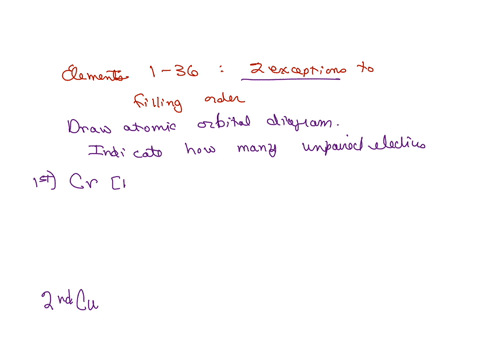 Elements 1-36 : 2 exceptions to
filling order
Draw atomic orbital diagram.
Indicate how many unpaired electrons
1st) Cr [
2nd Cu